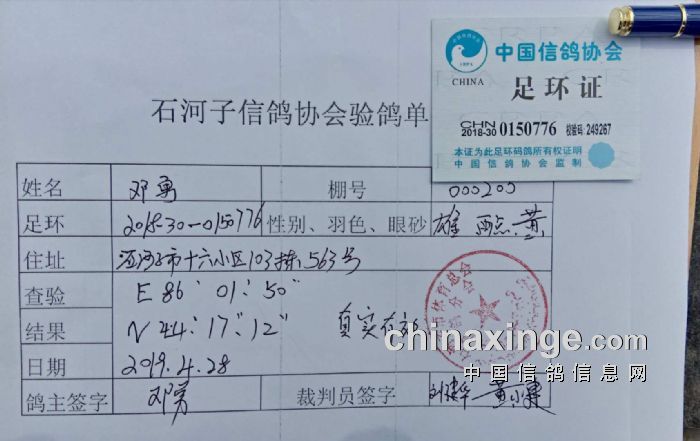 中国信鸽协会
CHINA
足环证
CHN
2018-30 0150776 校验码:249267
本证为此足环码鸽所有权证明
中国信鸽协会监制
石河子信鸽协会验鸽单
姓名 邓勇 棚号 000203
足环 2018-30-0150776 性别、羽色、眼砂 雄 雨点 黄
住址 石河子市十六小区103栋563号
查验 E 86° 01' 50"
结果 N 44° 17' 12" 真实有效
日期 2019.4.28
鸽主签字 邓勇 裁判员签字
chinaxinge.com
中国信鸽信息网